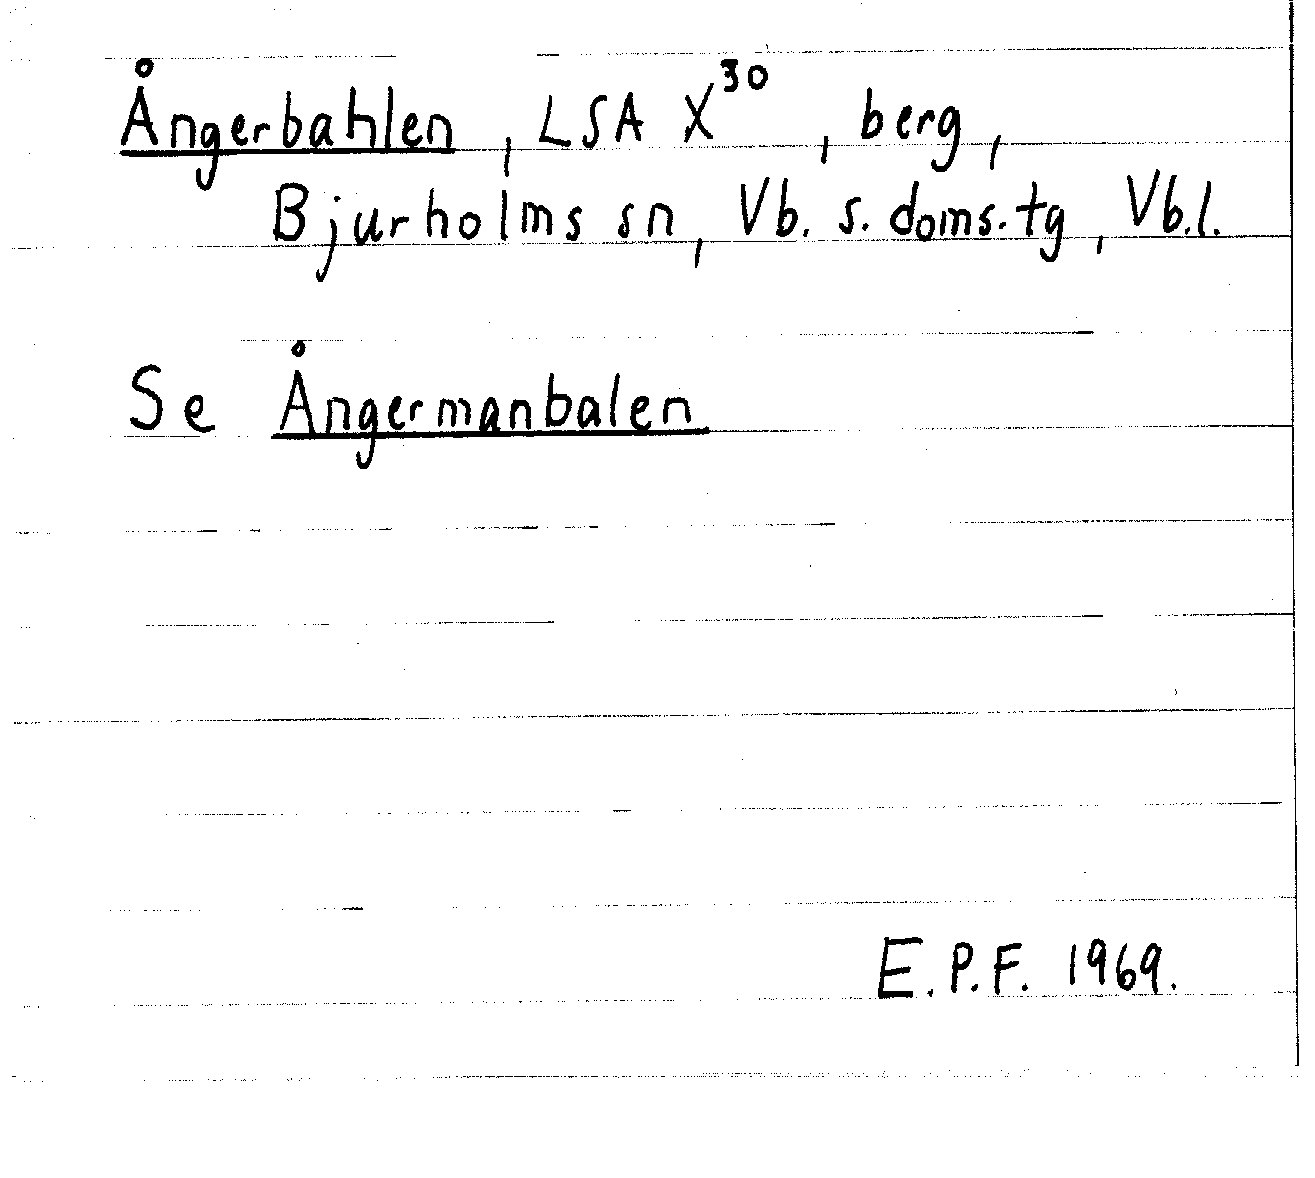 Ångerbahlen, LSA X³⁰, berg,
Bjurholms sn, Vb. s. doms.tg, Vb.l.
Se Ångermanbalen
E.P.F. 1969.